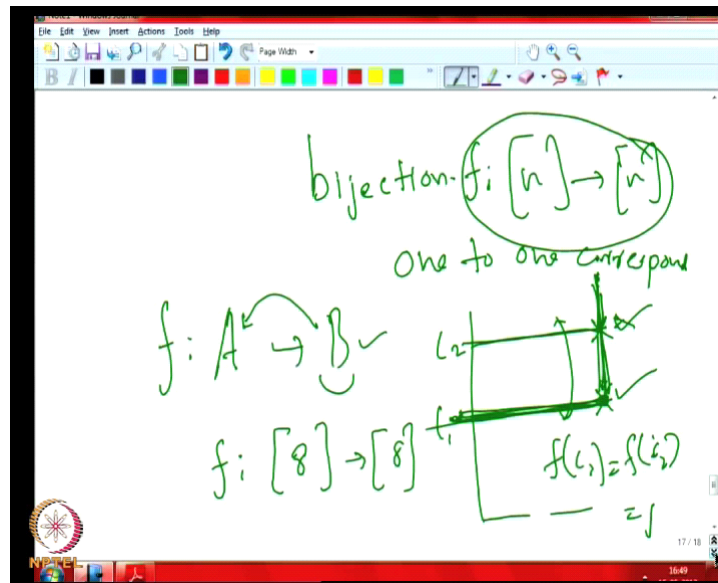 Note1 - Windows Journal
File Edit View Insert Actions Tools Help
Page Width
B I
bijection f: [n] → [n]
one to one correspon
f: A → B ✓
i2
i1
f: [8] → [8]
f(i1) = f(i2)
= j
17 / 18
NPTEL
16:49